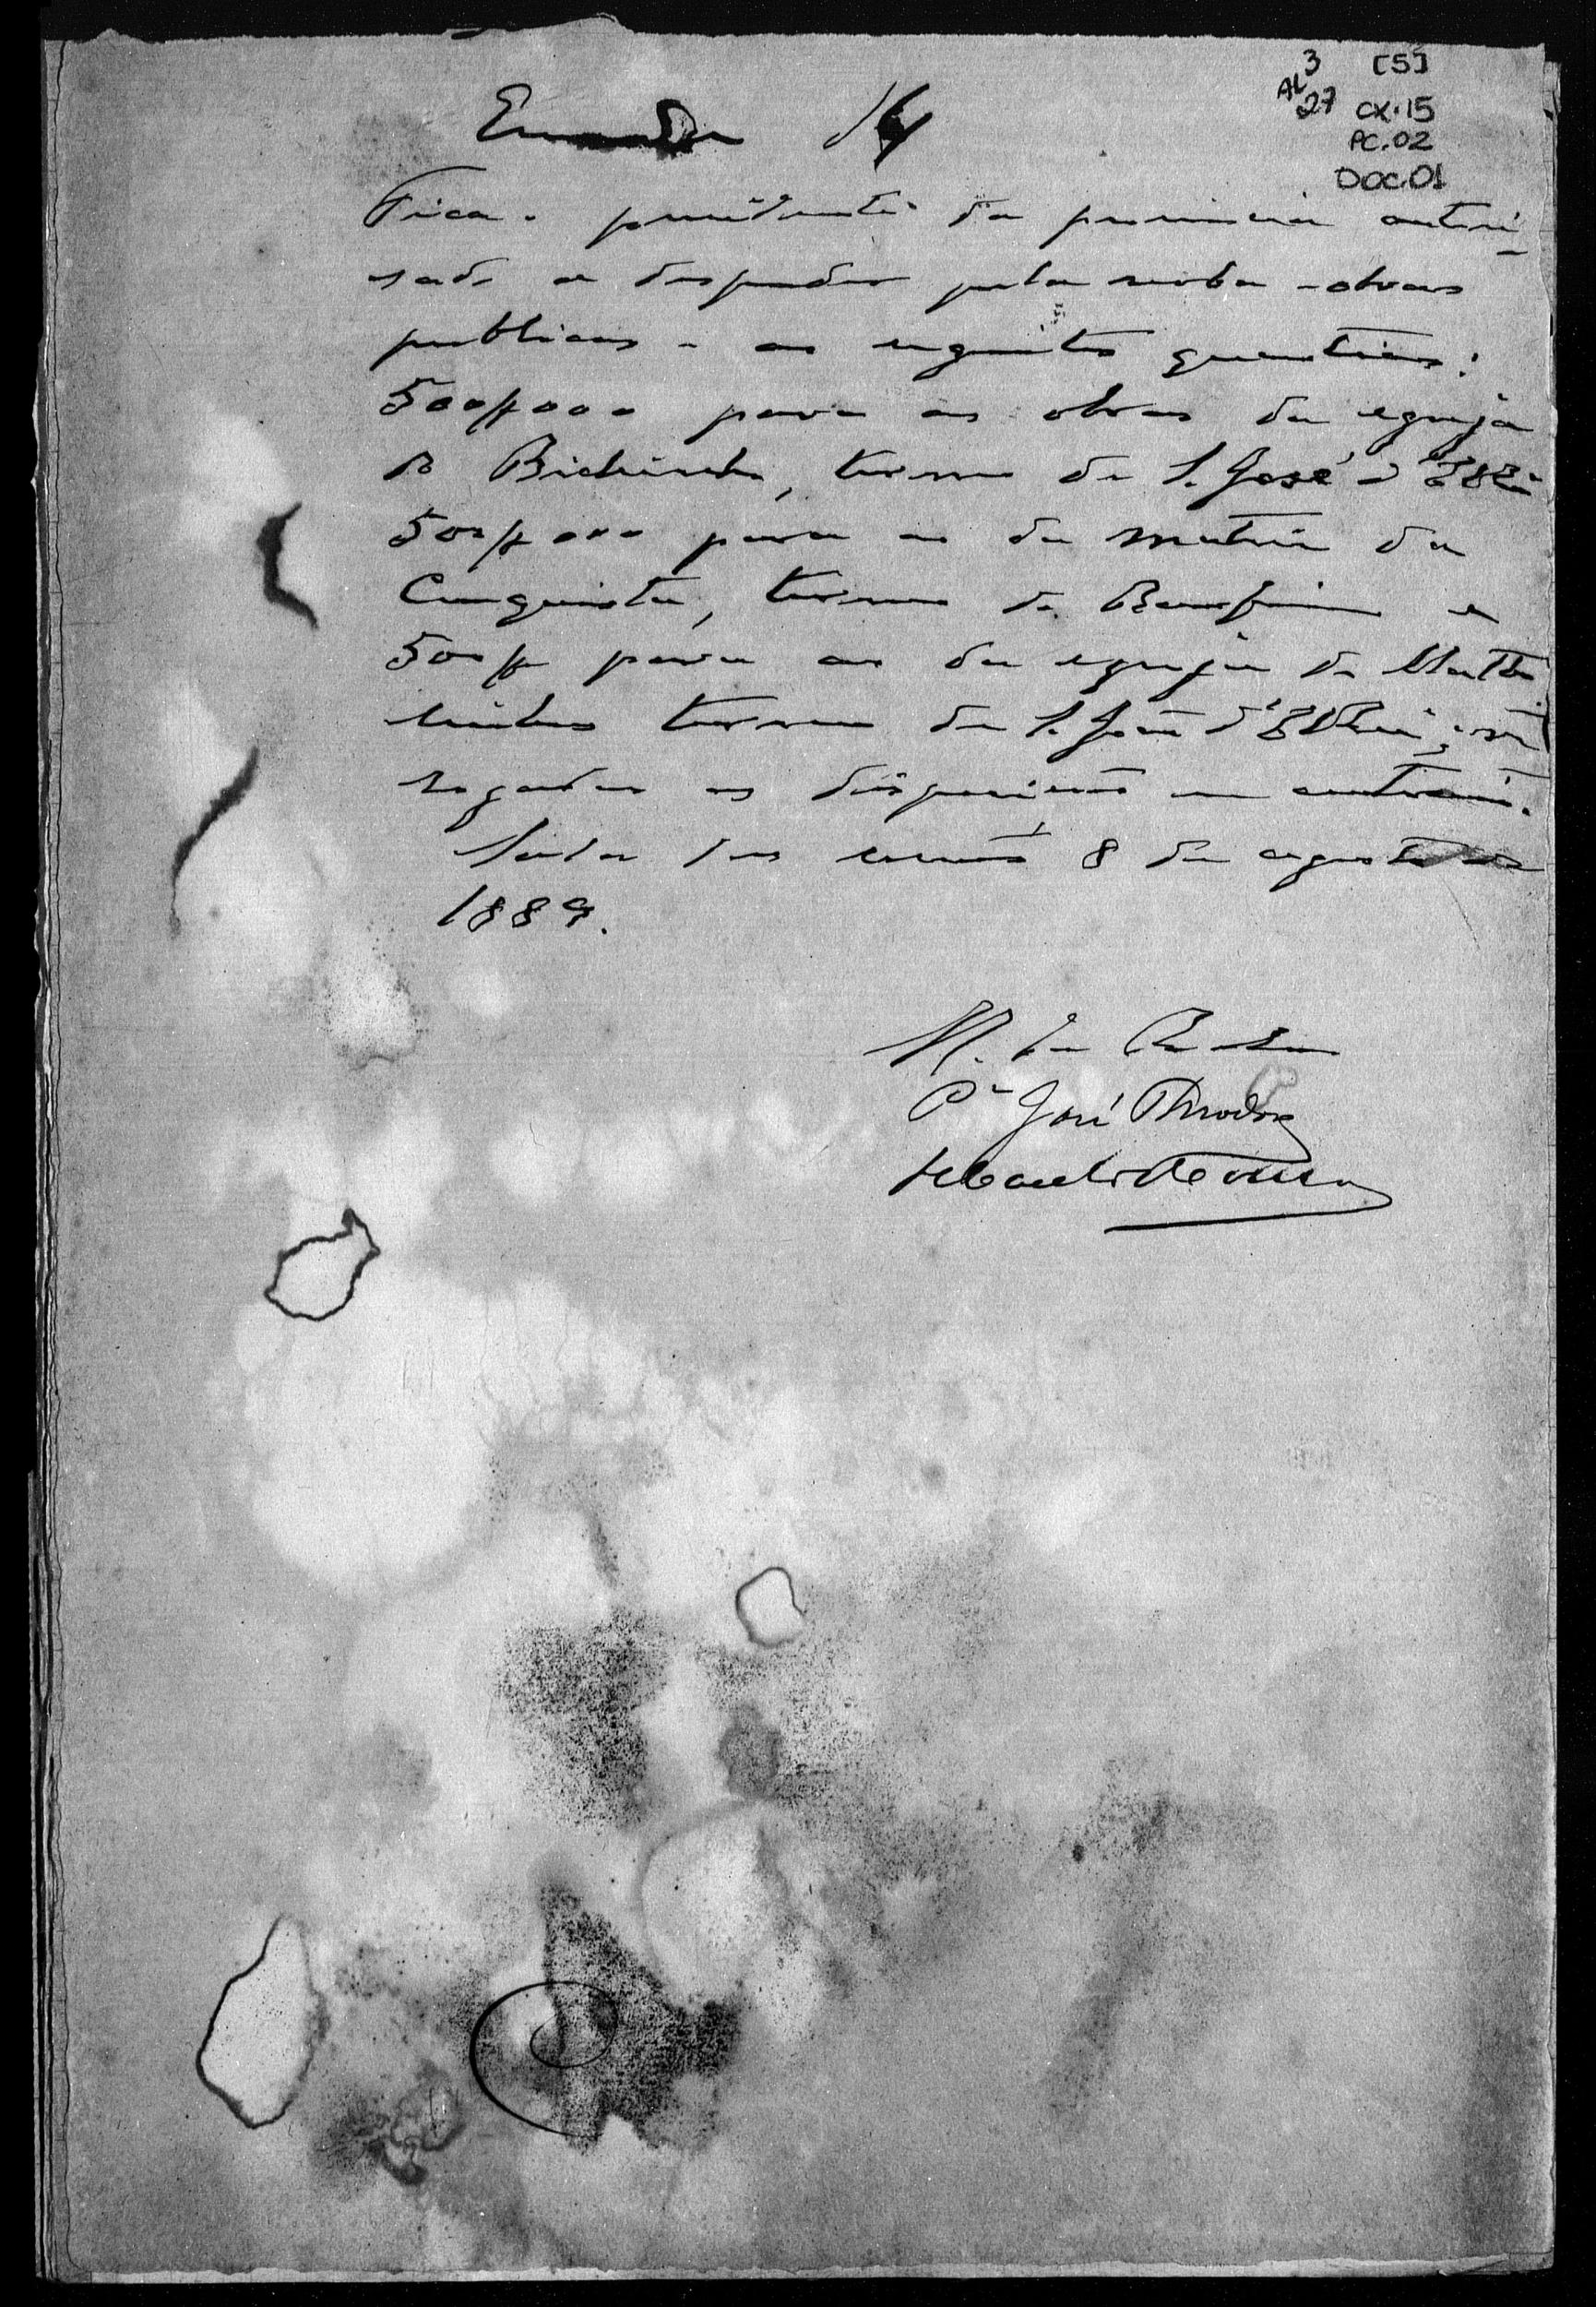 3 [5]
AL
27 CX.15
PC.02
DOC.01
Emenda
Fica o presidente da provincia autori-
sado a despender pela verba - obras
publicas - as seguintes quantias:
500$000 para as obras da egreja
do Bichinho, termo de S. José d'El-Rei
500$000 para as da matriz da
Conquista, termo do Bomfim e
500$ para as da egreja de Matto
sinhos termo de S. João d'El Rei, re
vogadas as disposições em contrario.
Sala das sessões, 8 de agosto de
1889.
Pe José Theodoro